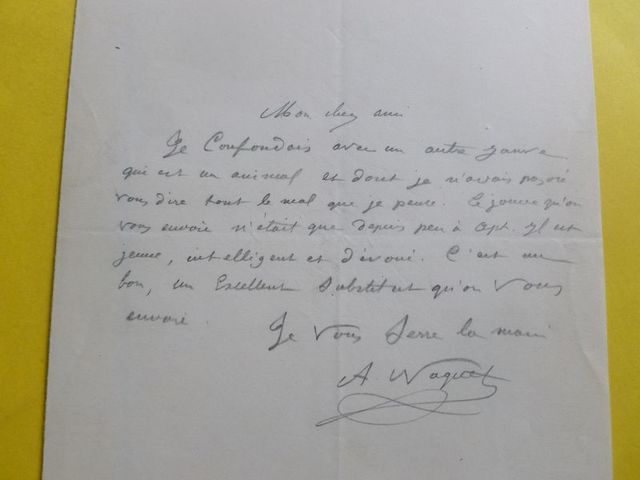 Mon cher ami
Je Confondais avec un autre Jauvre
qui est un animal et dont je n'avais pas osé
vous dire tout le mal que je pense. Ce Jauvre qu'on
vous envoie n'était que depuis peu à Apt. Il est
jeune, intelligent et dévoué. C'est un
bon, un Excellent Substitut qu'on Vous
envoie.
Je Vous Serre la main
A